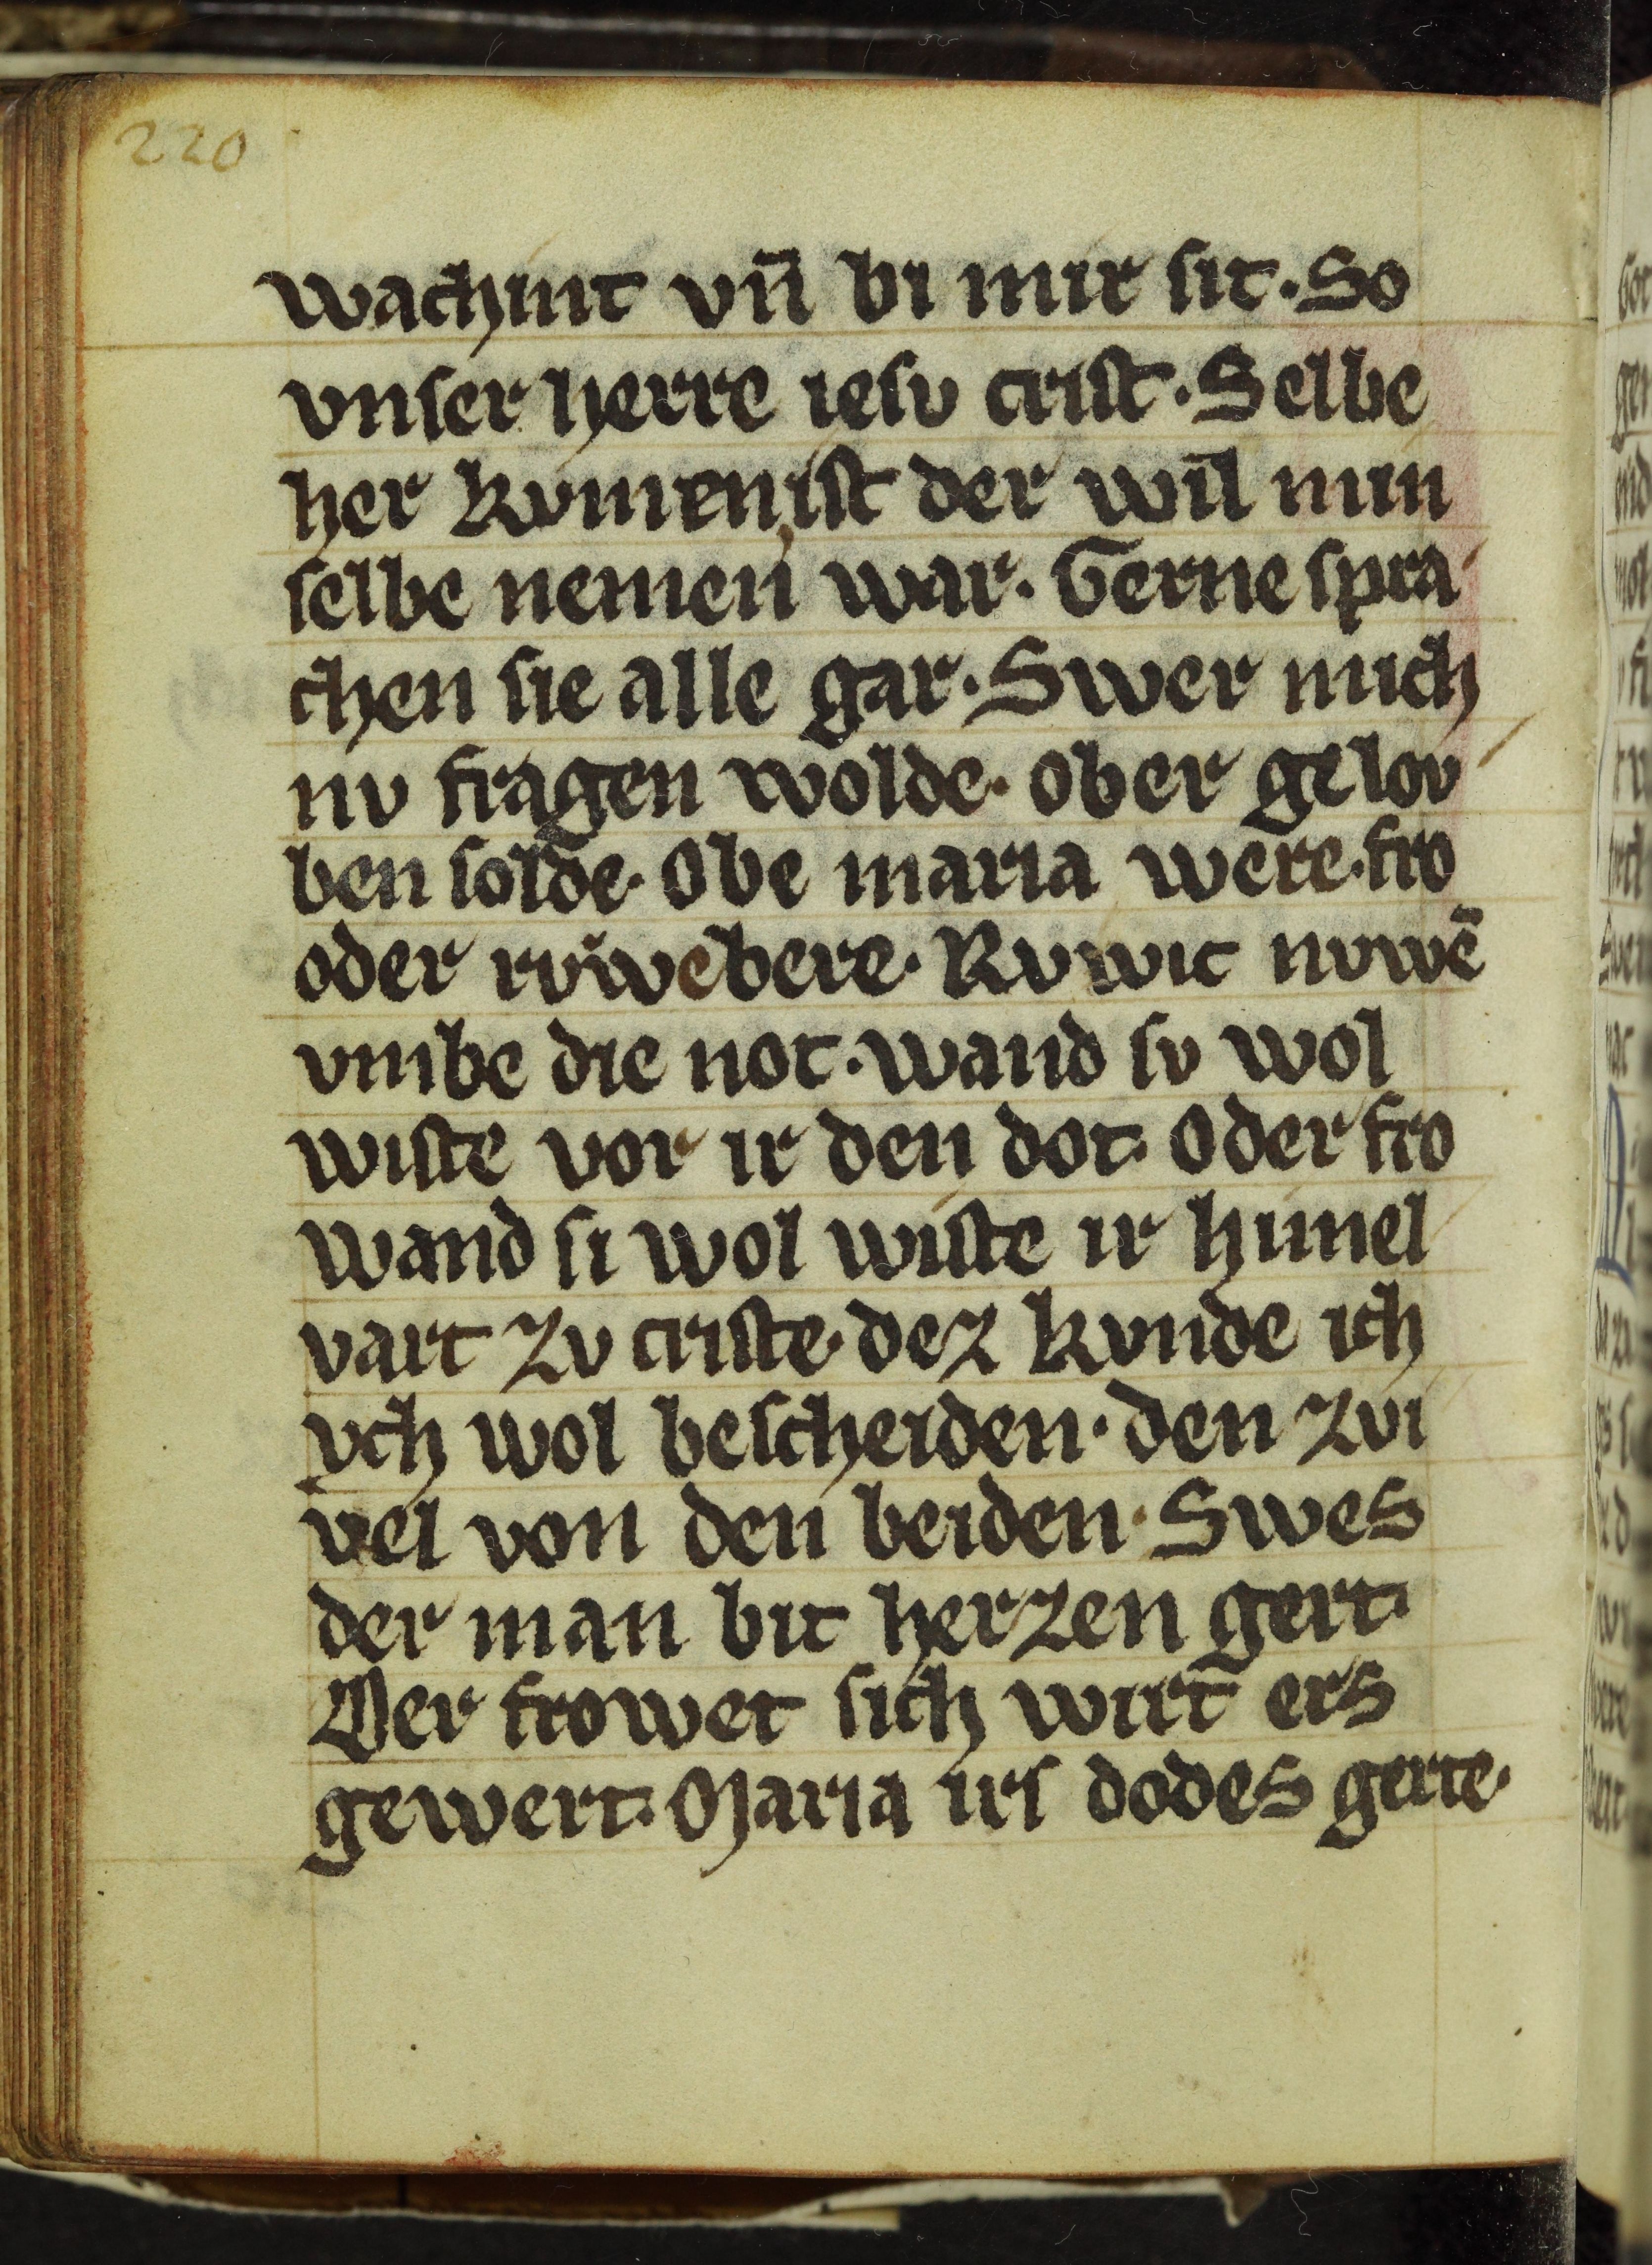 220
wachint vn̄ bi mir sit. So
vnser herre iesu crist. Selbe
her kumen ist der wil min
selbe nemen war. Gerne spra
chen sie alle gar. Swer mich
nv fragen wolde. ob er gelov
ben solde. Obe maria were. fro
oder rv̌webere. Rvwic nvwē
vmbe die not. wand sv wol
wiste vor ir den dot. Oder fro
wand si wol wiste ir himel
vart zv criste. dez kvnde ich
vch wol bescheiden. den zvi
vel von den beiden. Swes
der man bit herzen gert.
Der frowet sich wirt ers
gewert. Maria irs dodes gerte.